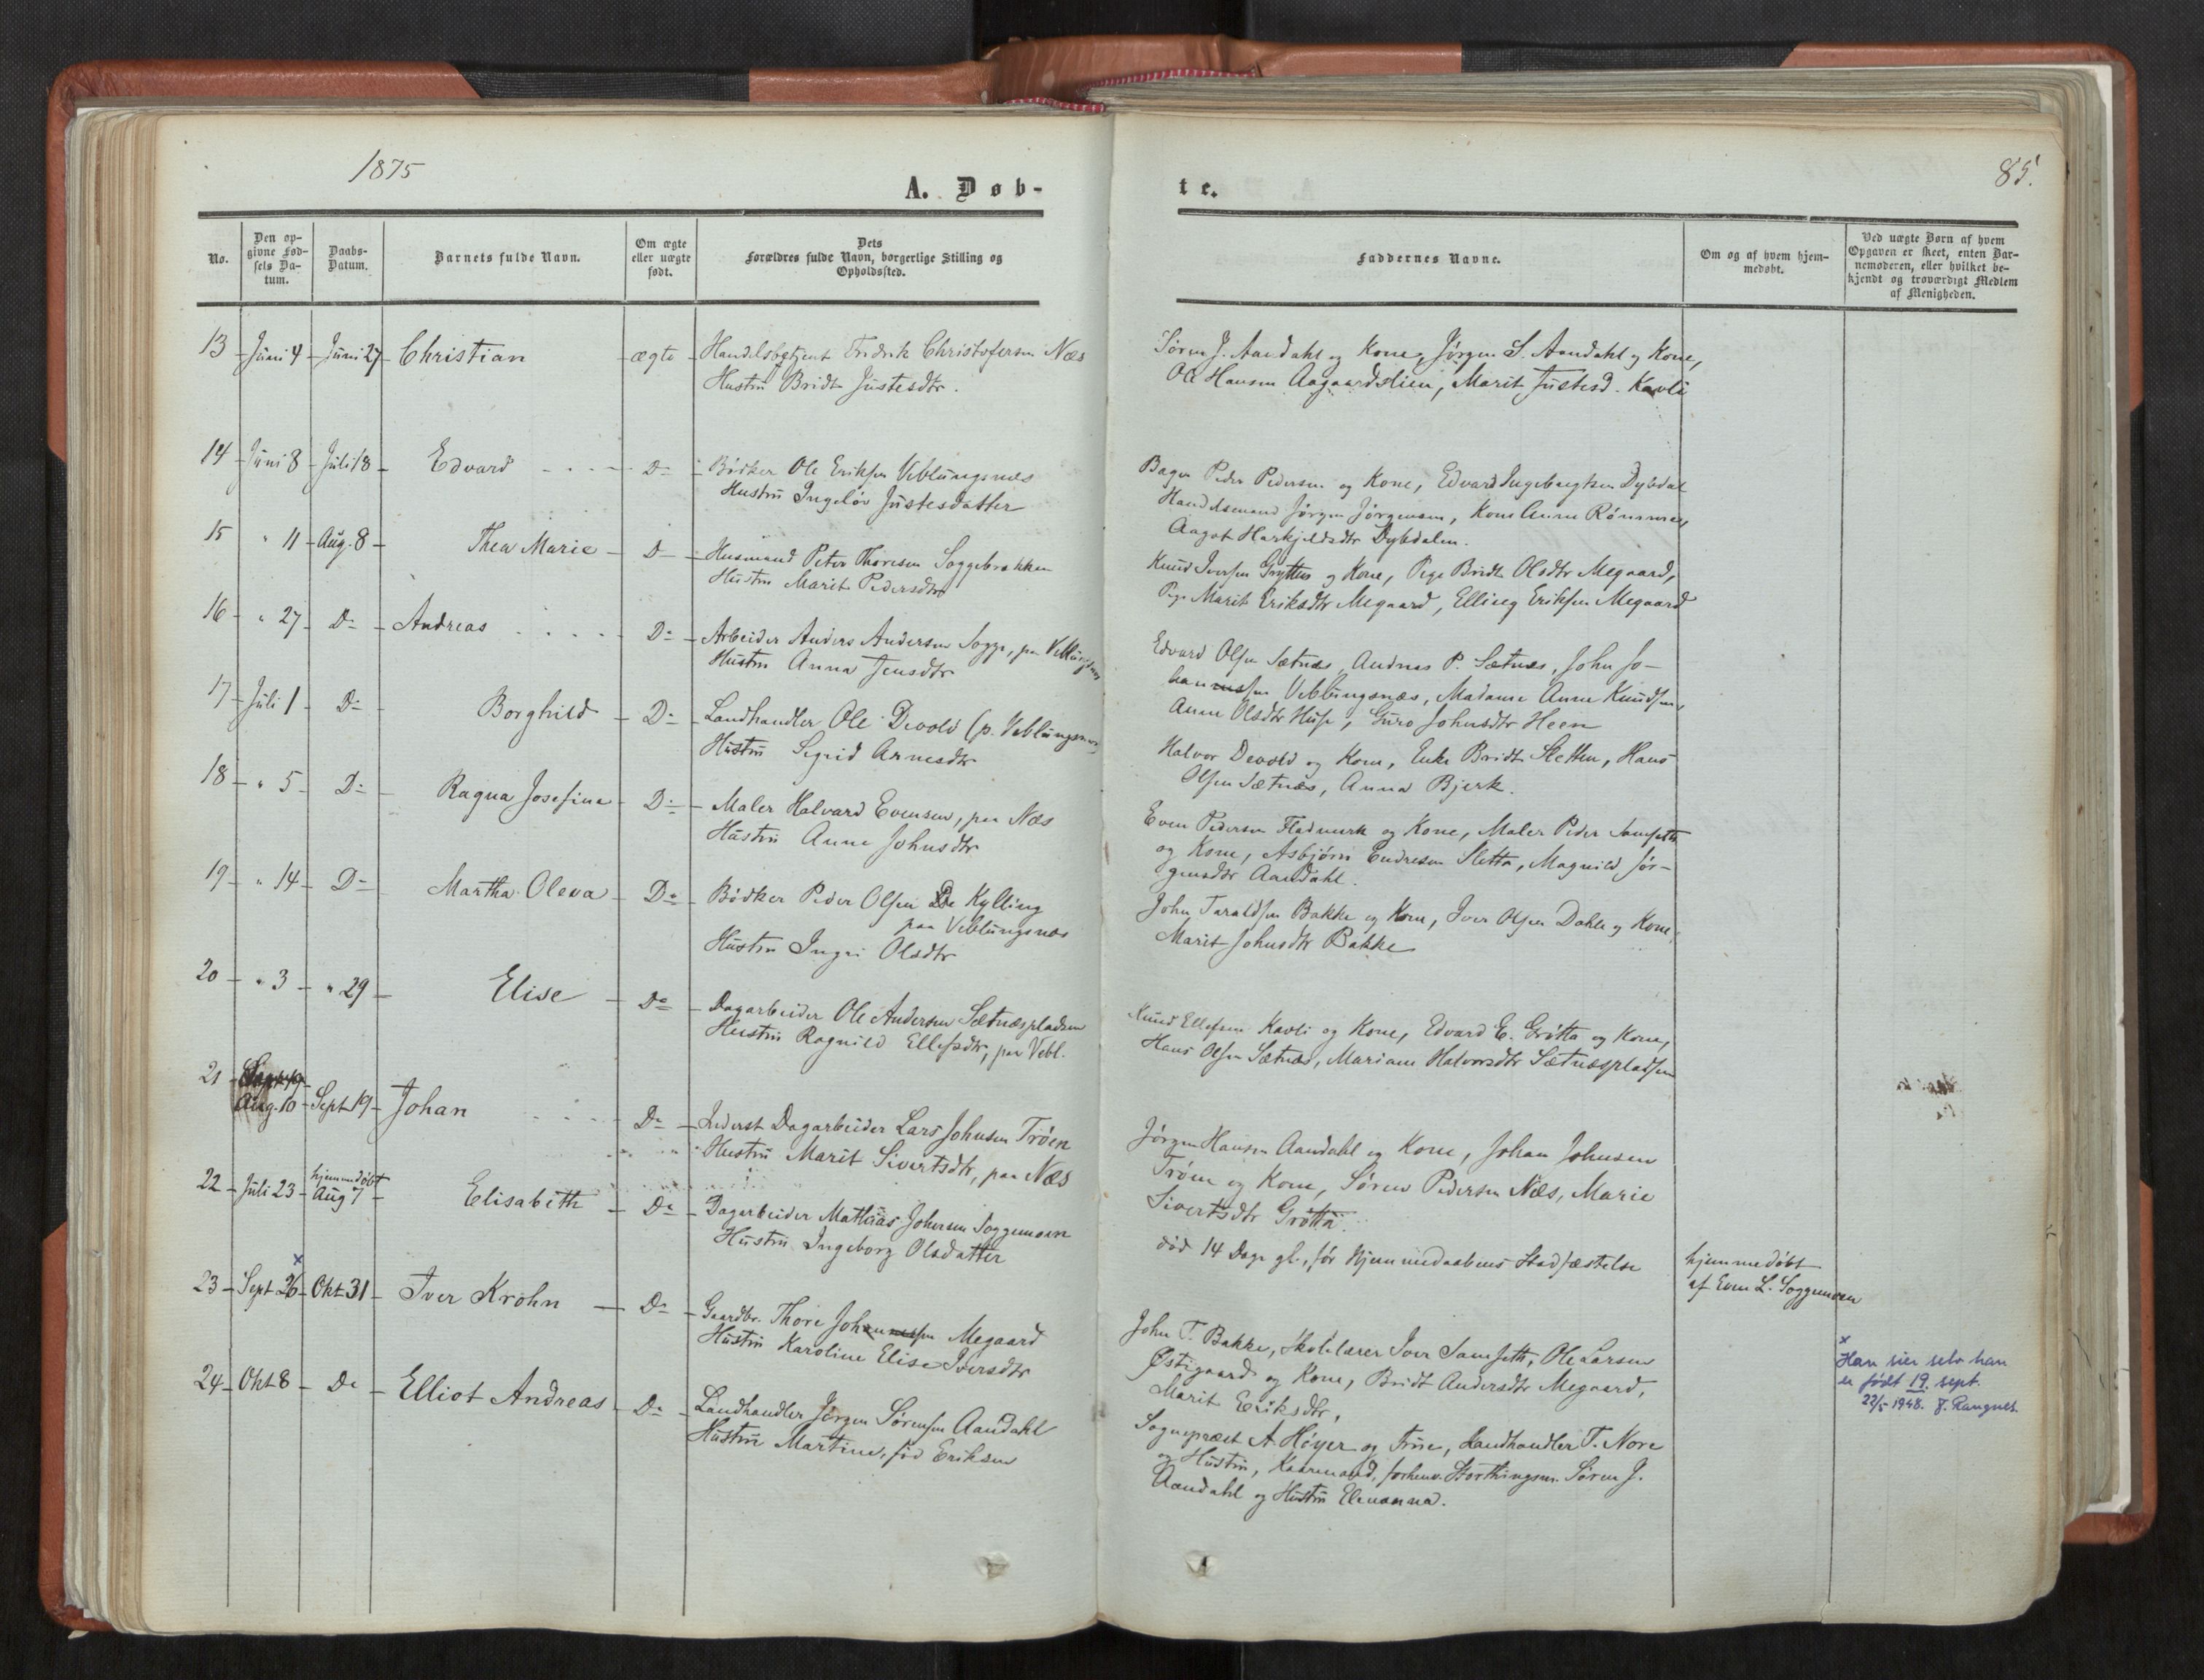 1875
A. Døb-
No.
Den op-
givne Fød-
sels Da-
tum.
Daabs-
Datum.
Barnets fulde Navn.
Om ægte
eller uægte
født.
Dets
Forældres fulde Navn, borgerlige Stilling og
Opholdssted.
13 - Juni 4 - Juni 27 - Christian - ægte - Handelsbetjent Fredrik Christofersen Næs
Hustru Bridt Justesdtr.
14 - Juni 8 - Juli 18 - Edvard - D= - Bødker Ole Eriksen Veblungsnæs
Hustru Ingeløv Justesdatter
15 " 11 - Aug. 8 - Thea Marie - D= - Husmand Peter Thoresen Soggebrekken
Hustru Marit Pedersdtr
16 - " 27 - D= - Andreas - D= - Arbeider Anders Andersen Sogge, paa Veblungsnæs
Hustru Anna Jensdtr
17 - Juli 1 - D= - Borghild - D= - Landhandler Ole Devold (p. Veblungsnæs)
Hustru Sigrid Arnesdtr
18 - " 5 - D= - Ragna Josefine - D= - Maler Halvard Evensen, paa Næs
Hustru Anne Johnsdtr
19 - " 14 - D= - Martha Oleva - D= - Bødker Peder Olsen Kylling
paa Veblungsnæs
Hustru Ingri Olsdtr
20 - " 3 - " 29 - Elise - D= - Dagarbeider Ole Andersen Sætnæspladsen
Hustru Ragnild Ellefsdtr, paa Vebl.
21 - Aug. 10 - Sept 19 - Johan - D= - Inderst Dagarbeider Lars Johnsen Trøen
Hustru Marit Sivertsdtr, paa Næs
hjemmedøbt
22 - Juli 23 - Aug 7 - Elisabeth - D= - Dagarbeider Mathias Johnsen Soggemoen
Hustru Ingeborg Olsdatter
x
23 - Sept 26 - Okt 31 - Iver Krohn - D= - Gaardbr. Thore Johannessen Megaard
Hustru Karoline Elise Iversdtr
24 - Okt 8 - D= - Elliot Andreas - D= - Landhandler Jørgen Sørensen Aandahl
Hustru Martine, fød Eriksen
te.
85.
Faddernes Navne.
Om og af hvem hjem-
medøbt.
Ved uægte Børn af hvem
Opgaven er skeet, enten Bar-
nemoderen, eller hvilket be-
kjendt og troværdigt Medlem
af Menigheden.
Søren J. Aandahl og Kone, Jørgen S. Aandahl og Kone,
Ole Hansen Aagaardslien, Marit Justesd. Kavli
Bager Peder Pedersen og Kone, Edvard Ingebrigtsen Dybdal
Handelsmand Jørgen Jørgensen, Kone Anne Rønnes
Aagot Haskjeldsdtr Dybdalen.
Knud Iversen Grytten og Kone, Pige Bridt Olsdtr Megaard,
Pige Marit Eriksdtr Megaard, Elling Eriksen Megaard
Edvard Olsen Sætnæs, Andreas P. Sætnæs, John Jo-
hannessen Veblungsnæs, Madame Anne Knudsen,
Anne Olsdtr Huse, Guro Johnsdtr Heen
Halvor Devold og Kone, Enke Bridt Sletten, Hans
Olsen Sætnæs, Anna Bjerk.
Even Pedersen Fladmark og Kone, Maler Peder Samseth
og Kone, Asbjørn Endresen Sletta, Magnild Jør-
gensdtr Aandahl.
John Taraldsen Bakke og Kone, Iver Olsen Dahle og Kone,
Marit Johnsdtr Bakke
Knud Ellefsen Kavli og Kone, Edvard E. Grøtta og Kone,
Hans Olsen Sætnæs, Mariane Halvorsdtr Sætnæspladsen
Jørgen Hansen Aandahl og Kone, Johan Johnsen
Trøen og Kone, Søren Pedersen Næs, Marie
Sivertsdtr Grøtta.
død 14 Dage gl., før Hjemmedaabens Stadfæstelse
hjemmedøbt
af Even L. Soggemoen
John T. Bakke, Skolelærer Iver Samseth, Ole Larsen
Østigaard og Kone, Bridt Andersdtr Megaard,
Marit Eriksdtr,
x
Han sier selv han
er født 19. sept.
22/5 1948. F. Rangnes
Sogneprest A. Høyer og Frue, Landhandler T. Nore
og Hustru, Kaarmand, forhenv. Storthingsm. Søren J.
Aandahl og Hustru Elenanna.